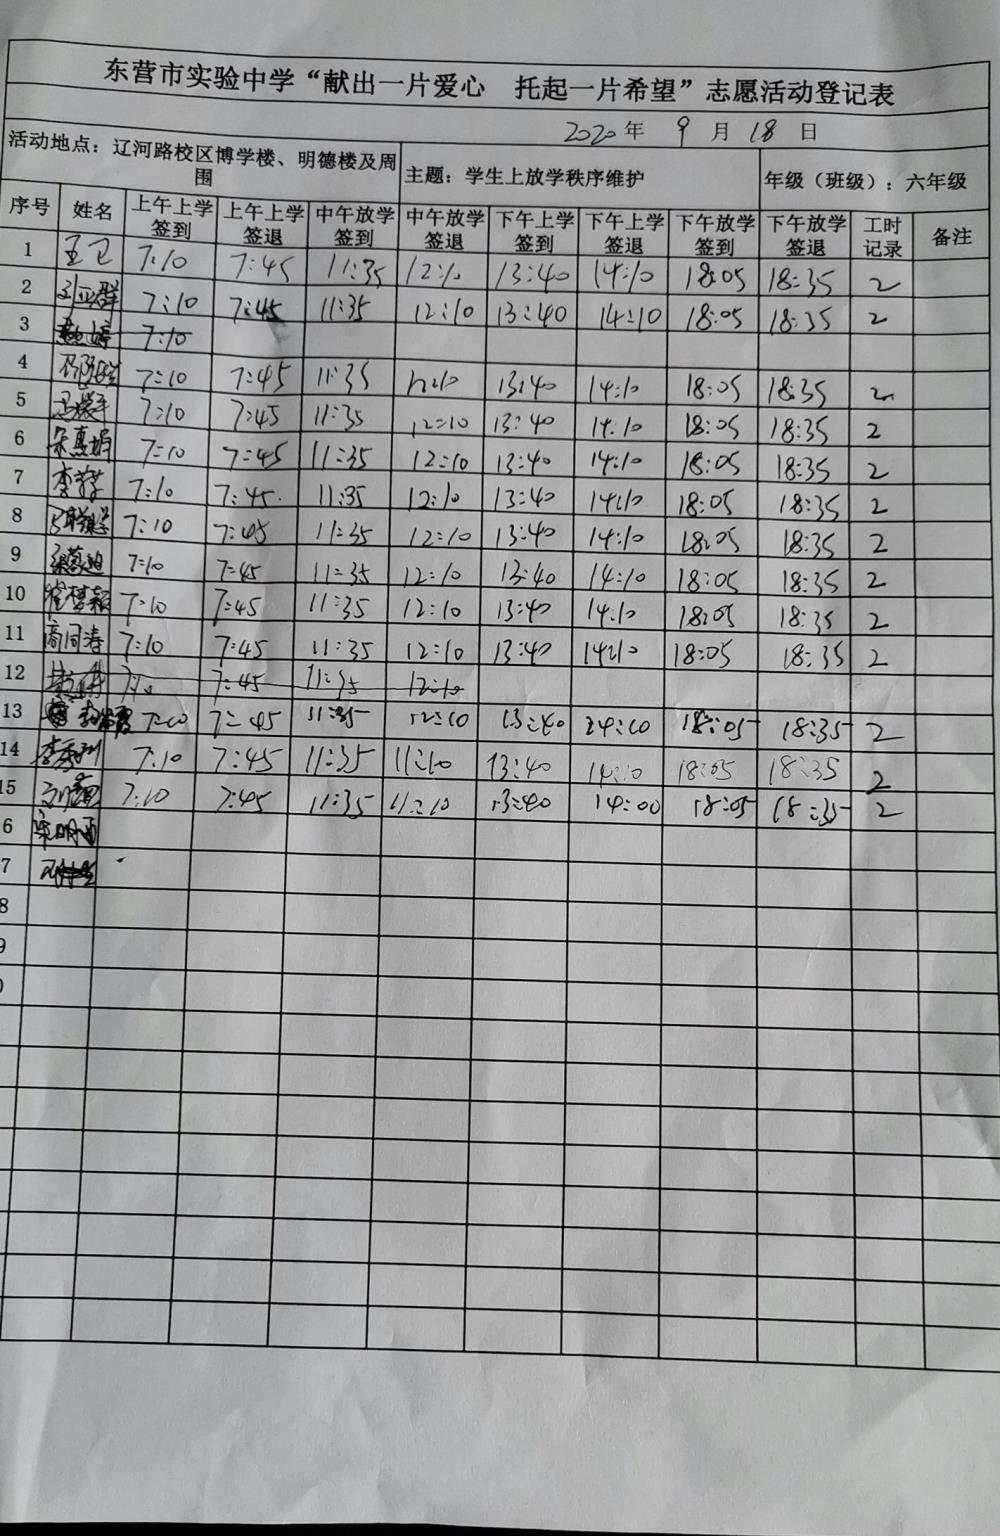 东营市实验中学“献出一片爱心 托起一片希望”志愿活动登记表
2020年 9月 18日
活动地点：辽河路校区博学楼、明德楼及周围 主题：学生上放学秩序维护 年级（班级）：六年级
序号 姓名 上午上学签到 上午上学签退 中午放学签到 中午放学签退 下午上学签到 下午上学签退 下午放学签到 下午放学签退 工时记录 备注
1 王卫 7:10 7:45 11:35 12:10 13:40 14:10 18:05 18:35 2
2 7:10 7:45 11:35 12:10 13:40 14:10 18:05 18:35 2
3 7:10
4 7:10 7:45 11:35 12:10 13:40 14:10 18:05 18:35 2
5 7:10 7:45 11:35 12:10 13:40 14:10 18:05 18:35 2
6 宋惠娟 7:10 7:45 11:35 12:10 13:40 14:10 18:05 18:35 2
7 7:10 7:45 11:35 12:10 13:40 14:10 18:05 18:35 2
8 7:10 7:45 11:35 12:10 13:40 14:10 18:05 18:35 2
9 7:10 7:45 11:35 12:10 13:40 14:10 18:05 18:35 2
10 崔梦颖 7:10 7:45 11:35 12:10 13:40 14:10 18:05 18:35 2
11 商同涛 7:10 7:45 11:35 12:10 13:40 14:10 18:05 18:35 2
12 7:45 11:35 12:10
13 7:10 7:45 11:35 12:10 13:40 14:10 18:05 18:35 2
14 7:10 7:45 11:35 11:10 13:40 14:10 18:05 18:35 2
15 7:10 7:45 11:35 11:10 13:40 14:00 18:05 18:35 2
6
7
8
9
0